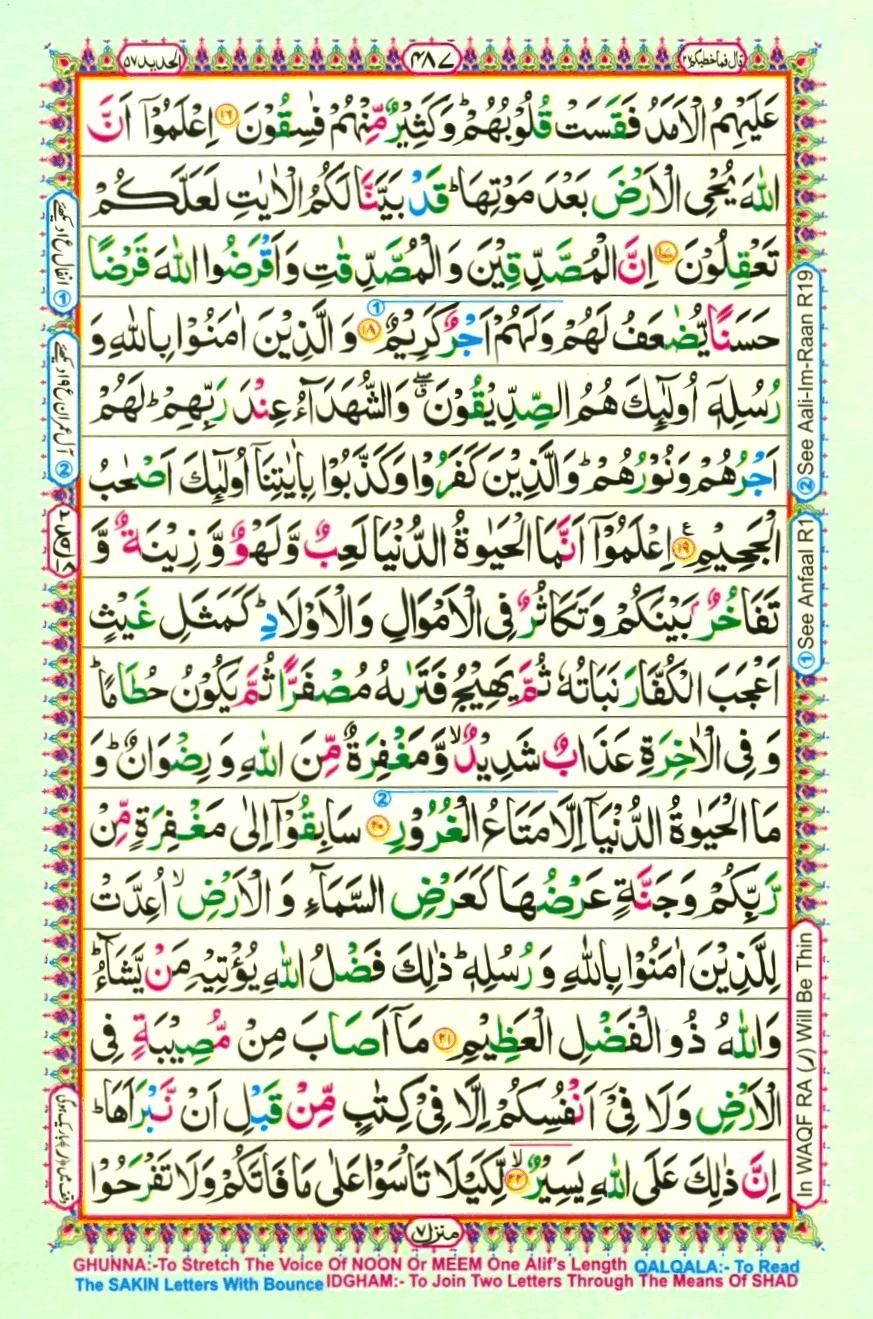 قال فما خطبكم ٢٧
٤٨٧
الحديد ٥٧
عَلَيْهِمُ الْاَمَدُ فَقَسَتْ قُلُوْبُهُمْ ؕ وَكَثِيْرٌ مِّنْهُمْ فٰسِقُوْنَ ﴿۱۶﴾ اِعْلَمُوْۤا اَنَّ
اللّٰهَ يُحْيِ الْاَرْضَ بَعْدَ مَوْتِهَا ؕ قَدْ بَيَّنَّا لَكُمُ الْاٰيٰتِ لَعَلَّكُمْ
تَعْقِلُوْنَ ﴿۱۷﴾ اِنَّ الْمُصَّدِّقِيْنَ وَالْمُصَّدِّقٰتِ وَاَقْرَضُوا اللّٰهَ قَرْضًا
حَسَنًا يُّضٰعَفُ لَهُمْ وَلَهُمْ اَجْرٌ كَرِيْمٌ ﴿۱۸﴾ وَالَّذِيْنَ اٰمَنُوْا بِاللّٰهِ وَ
رُسُلِهٖۤ اُولٰٓئِكَ هُمُ الصِّدِّيْقُوْنَ ۖۗ وَالشُّهَدَآءُ عِنْدَ رَبِّهِمْ ؕ لَهُمْ
اَجْرُهُمْ وَنُوْرُهُمْ ؕ وَالَّذِيْنَ كَفَرُوْا وَكَذَّبُوْا بِاٰيٰتِنَاۤ اُولٰٓئِكَ اَصْحٰبُ
الْجَحِيْمِ ﴿۱۹﴾ اِعْلَمُوْۤا اَنَّمَا الْحَيٰوةُ الدُّنْيَا لَعِبٌ وَّلَهْوٌ وَّزِيْنَةٌ وَّ
تَفَاخُرٌۢ بَيْنَكُمْ وَتَكَاثُرٌ فِى الْاَمْوَالِ وَالْاَوْلَادِ ؕ كَمَثَلِ غَيْثٍ
اَعْجَبَ الْكُفَّارَ نَبَاتُهٗ ثُمَّ يَهِيْجُ فَتَرٰىهُ مُصْفَرًّا ثُمَّ يَكُوْنُ حُطَامًا ؕ
وَفِى الْاٰخِرَةِ عَذَابٌ شَدِيْدٌ ۙ وَّمَغْفِرَةٌ مِّنَ اللّٰهِ وَرِضْوَانٌ ؕ وَ
مَا الْحَيٰوةُ الدُّنْيَاۤ اِلَّا مَتَاعُ الْغُرُوْرِ ﴿۲۰﴾ سَابِقُوْۤا اِلٰى مَغْفِرَةٍ مِّنْ
رَّبِّكُمْ وَجَنَّةٍ عَرْضُهَا كَعَرْضِ السَّمَآءِ وَالْاَرْضِ ۙ اُعِدَّتْ
لِلَّذِيْنَ اٰمَنُوْا بِاللّٰهِ وَرُسُلِهٖ ؕ ذٰلِكَ فَضْلُ اللّٰهِ يُؤْتِيْهِ مَنْ يَّشَآءُ ؕ
وَاللّٰهُ ذُو الْفَضْلِ الْعَظِيْمِ ﴿۲۱﴾ مَاۤ اَصَابَ مِنْ مُّصِيْبَةٍ فِى
الْاَرْضِ وَلَا فِىْۤ اَنْفُسِكُمْ اِلَّا فِىْ كِتٰبٍ مِّنْ قَبْلِ اَنْ نَّبْرَاَهَا ؕ
اِنَّ ذٰلِكَ عَلَى اللّٰهِ يَسِيْرٌ ﴿۲۲﴾ لِّكَيْلَا تَاْسَوْا عَلٰى مَا فَاتَكُمْ وَلَا تَفْرَحُوْا
منزل ٧
① See Anfaal R1
② See Aali-Im-Raan R19
In WAQF RA (ر) Will Be Thin
① انفال ع ١ دیکھئے
② آل عمران ع ١٩ دیکھئے
GHUNNA:-To Stretch The Voice Of NOON Or MEEM One Alif's Length QALQALA:- To Read
The SAKIN Letters With Bounce IDGHAM:- To Join Two Letters Through The Means Of SHAD